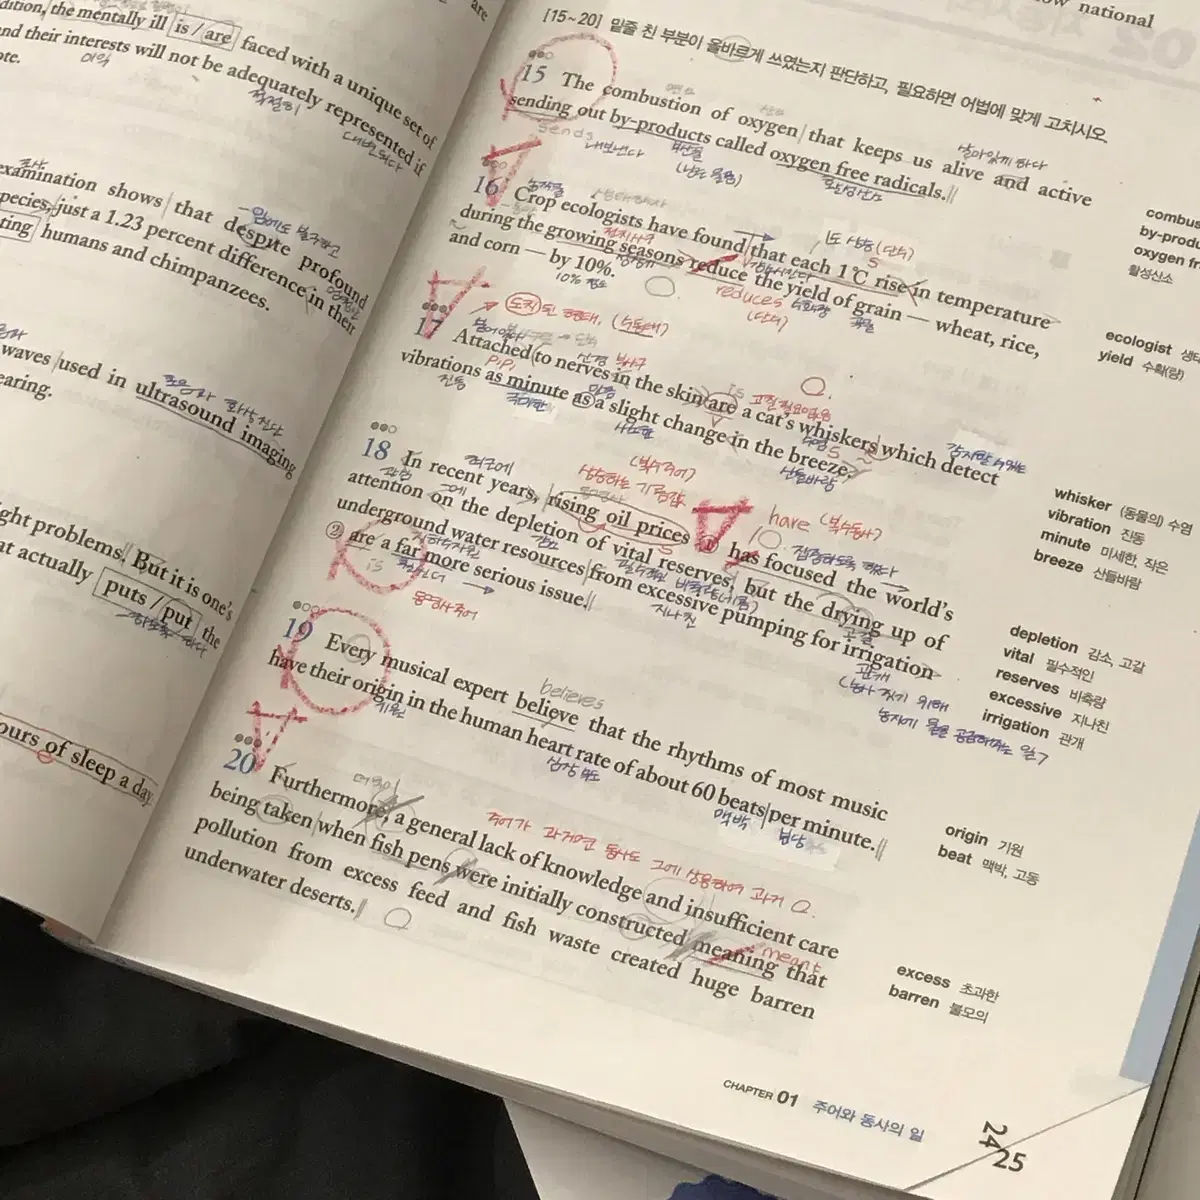 dition, the mentally ill is / are faced with a unique set of
nd their interests will not be adequately represented if
ote.
적절히
대변되다
examination shows that despite profound
species, just a 1.23 percent difference in their
ting humans and chimpanzees.
waves used in ultrasound imaging
earing.
ght problems. But it is one's
at actually puts / put the
ours of sleep a day.
national
[15~20] 밑줄 친 부분이 올바르게 쓰였는지 판단하고, 필요하면 어법에 맞게 고치시오.
15 The combustion of oxygen that keeps us alive and active
살아있게 하다
sending out by-products called oxygen free radicals.
sends
내보낸다
부산물
활성산소
16 Crop ecologists have found that each 1℃ rise in temperature
1도 상승 (단수)
during the growing seasons reduce the yield of grain — wheat, rice,
reduces
(단수)
수확량
곡물
and corn — by 10%.
10% 감소
17 Attached to nerves in the skin are a cat's whiskers which detect
도치된 형태, (수동태)
P.P.
is
고칠필요없음
vibrations as minute as a slight change in the breeze.
진동
사소한
산들바람
18 In recent years, rising oil prices ① has focused the world's
최근에
(복수주어)
상승하는 기름값
have (복수동사)
집중하도록 했다
attention on the depletion of vital reserves, but the drying up of
관심
감소
고갈
underground water resources from excessive pumping for irrigation
지하수자원
지나친
관개
(농사 짓기 위해
② are a far more serious issue.
is
훨씬 더
동명사주어
19 Every musical expert believe that the rhythms of most music
believes
have their origin in the human heart rate of about 60 beats per minute.
기원
심장 박동
맥박
20 Furthermore, a general lack of knowledge and insufficient care
더욱이
주어가 과거면 동사도 그에 상응하여 과거 O.
being taken when fish pens were initially constructed meaning that
meant
pollution from excess feed and fish waste created huge barren
underwater deserts.
combus
by-produ
oxygen fr
활성산소
ecologist 생태
yield 수확(량)
whisker (동물의) 수염
vibration 진동
minute 미세한, 작은
breeze 산들바람
depletion 감소, 고갈
vital 필수적인
reserves 비축량
excessive 지나친
irrigation 관개
origin 기원
beat 맥박, 고동
excess 초과한
barren 불모의
CHAPTER 01 주어와 동사의 일
24
25